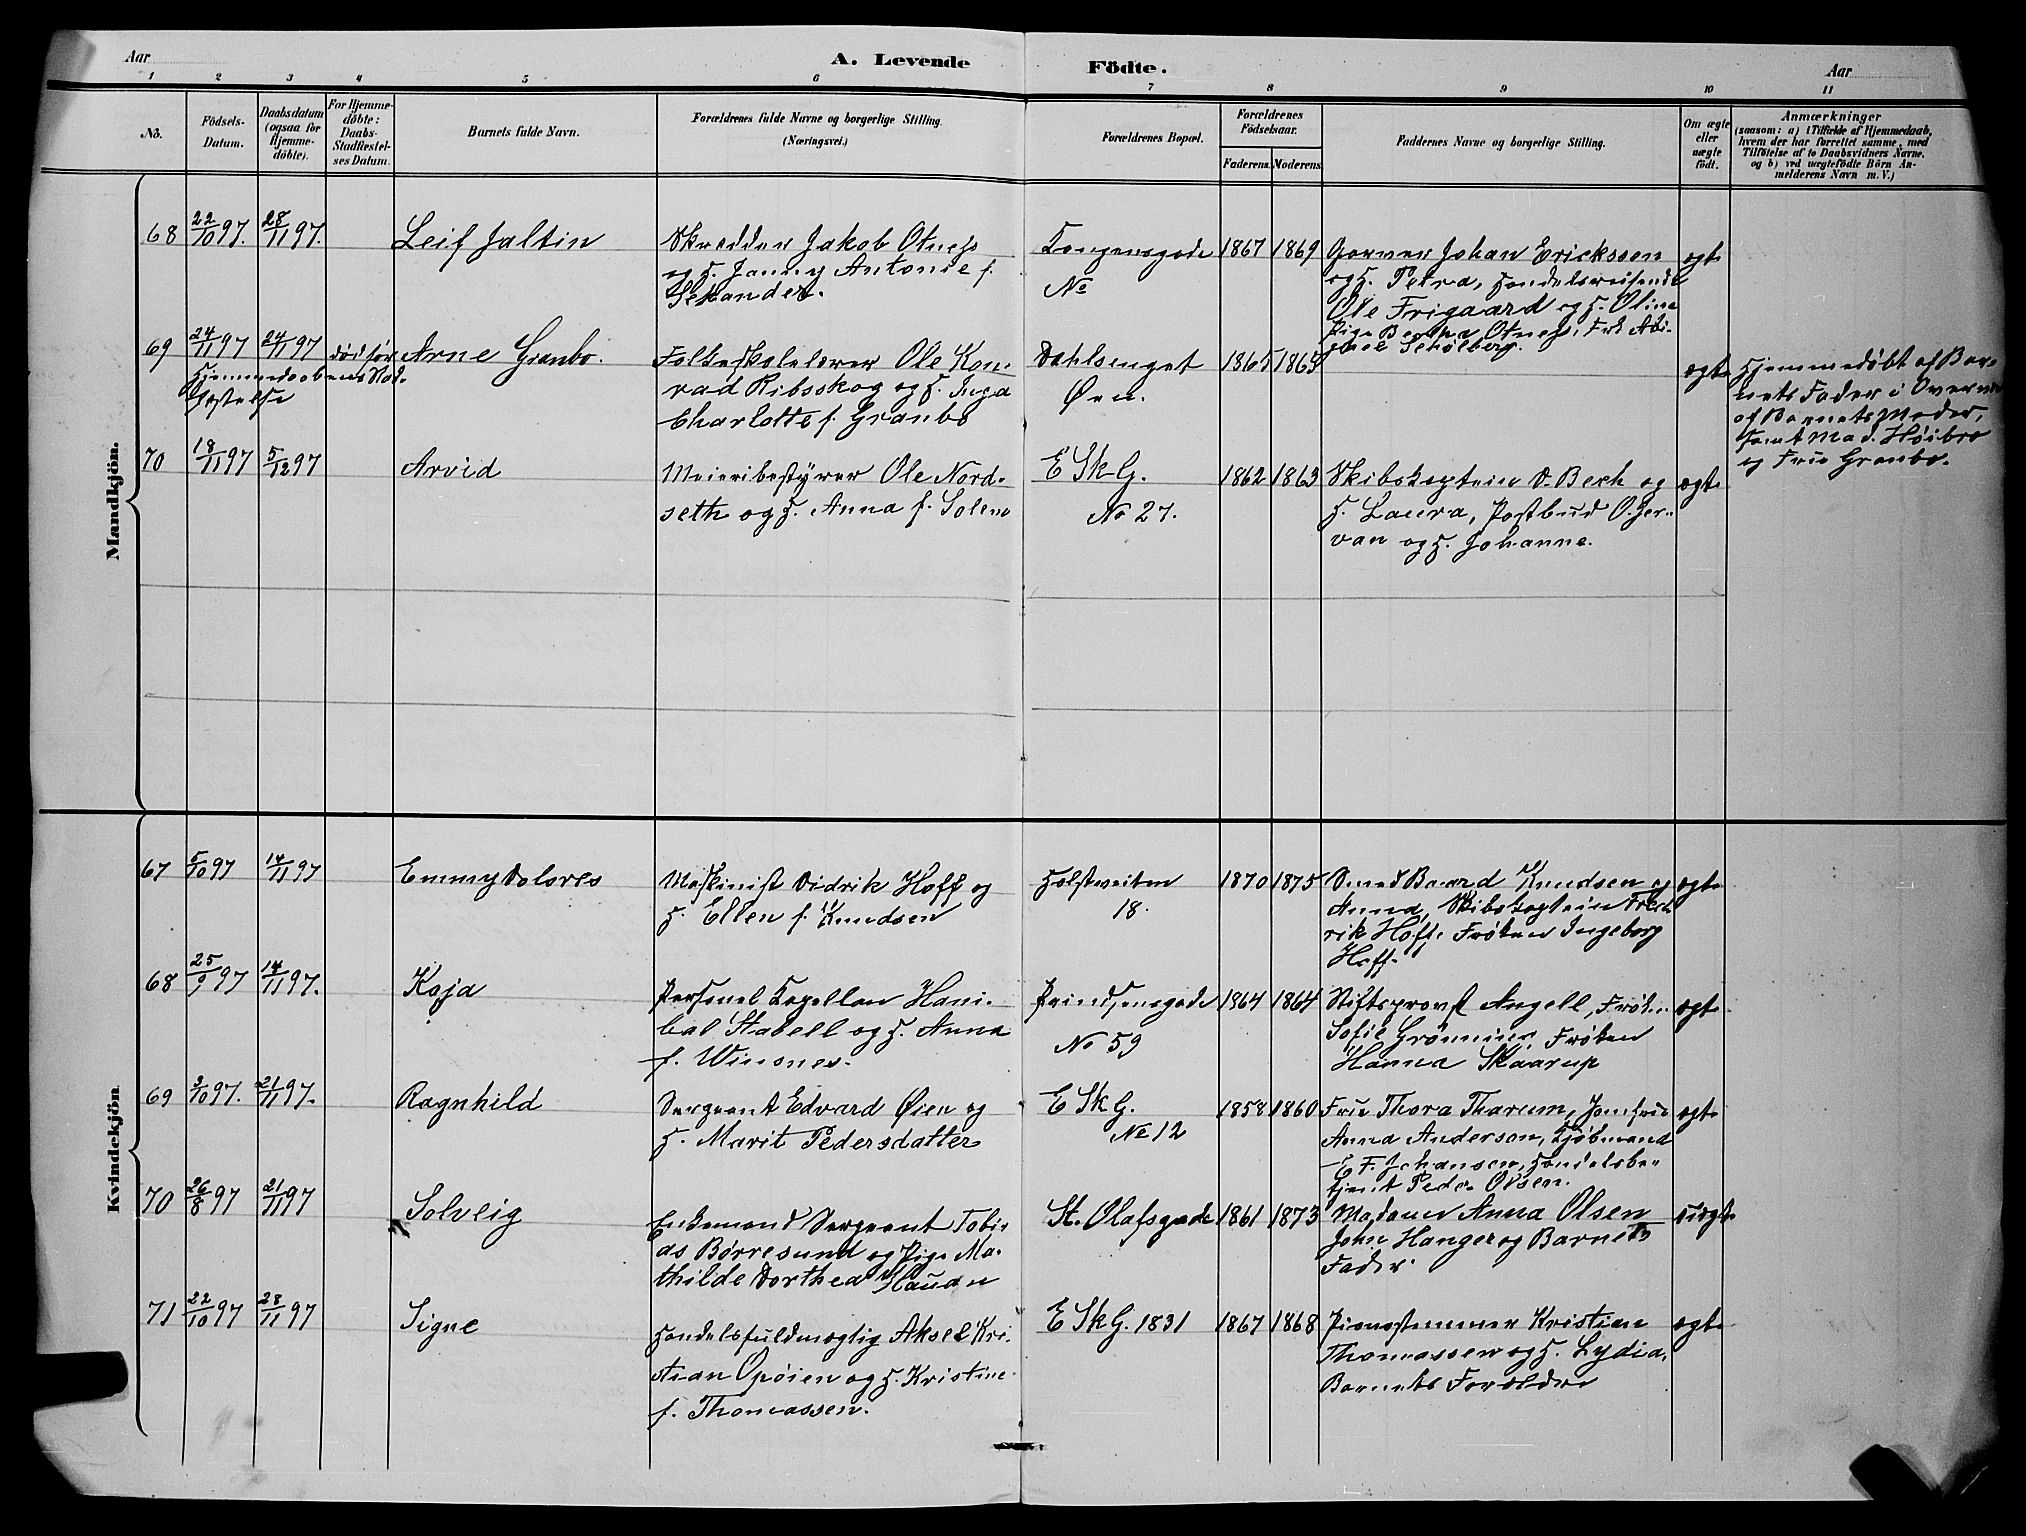 Aar
A. Levende Födte.
Aar
1 2 3 4 5 6 7 8 9 10 11
No.
Födsels-
Datum.
Daabsdatum
(ogsaa for
Hjemme-
döbte).
For Hjemme-
döbte:
Daabs-
Stadfæstel-
ses Datum.
Barnets fulde Navn.
Forældrenes fulde Navne og borgerlige Stilling.
(Næringsvei.)
Forældrenes Bopæl.
Forældrenes
Födselsaar.
Faderens. Moderens.
Faddernes Navne og borgerlige Stilling.
Om ægte
eller
uægte
födt.
Anmærkninger
(saasom: a) i Tilfælde af Hjemmedaab,
hvem der har forrettet samme, med
Tilföielse af to Daabsvidners Navne.
og b) ved uægtefödte Börn An-
melderens Navn m. V.)
Mandkjön.
68 22/10 97. 28/11 97. Leif Jaltin
Skrædder Jakob Otness
og H. Janny Antonie f.
Schander.
Kongensgade
No
1867 1869
Garver Johan Ericksson
og H. Petra, Handelsreisende
Ole Frigaard og H. Oline
Pige Bertha Otness, Frk Abi-
gael Schölberg.
ægte
69 24/11 97 24/11 97 död för Arne Granbo.
Hjemmedaabens Stad-
fæstelse
Folkeskolelærer Ole Kon-
rad Ribsskog og H. Inga
Charlotte f. Granbo
Dahlsenget
Øen.
1865 1865
ægte
Hjemmedøbt af Bar-
nets Fader i Overvær
af Barnets Moder,
samt Mad. Høibro
og Frue Granbo.
70 18/11 97 5/12 97 Arvid
Meieribestyrer Ole Nord-
seth og H. Anna f. Solem
E Sk G.
No 27.
1862 1863
Skibskaptein O. Bech og
H. Laura, Postbud O. Jer-
van og H. Johanne.
ægte
Kvindekjön
67 5/10 97 14/11 97 Emmy Dolores
Maskinist Didrik Hoff og
H. Ellen f. Knudsen
Holstveiten
18.
1870 1875
Smed Baard Knudsen og
Anna, Skibskaptein Fred-
rik Hoff, Frøken Ingeborg
Hoff.
ægte
68 25/9 97 14/11 97. Kaja
Personel Kapellan Hani-
bal Stabell og H. Anna
f. Winsnes.
Prindsensgade
No 59
1864 1864
Stiftsprovst Angell, Frøken
Sofie Grønning, Frøken
Hanna Skaarup
ægte
69 3/10 97. 21/11 97. Ragnhild
Sergeant Edvard Øien og
H. Marit Pedersdatter
E Sk G.
No 12
1858 1860
Frue Thora Tharum, Jomfrue
Anna Anderson, Kjøbmand
E F. Johansen, Handelsbe-
tjent Peder Olsen.
ægte
70 26/8 97 21/11 97 Solveig
Enkemand Sergeant Tobi-
as Børresund og Pige Ma-
thilde Dorthea Haudn
St. Olafsgade
1861 1873
Madame Anna Olsen
John Hanger og Barnets
Fader.
uægte
71 22/10 97 28/11 97 Signe
Handelsfuldmægtig Aksel Kri-
stian Opøien og H. Kristine
f. Thomassen.
E Sk G. 1831
1867 1868
Pianostemmer Kristian
Thomassen og H. Lydia,
Barnets Forældre
ægte